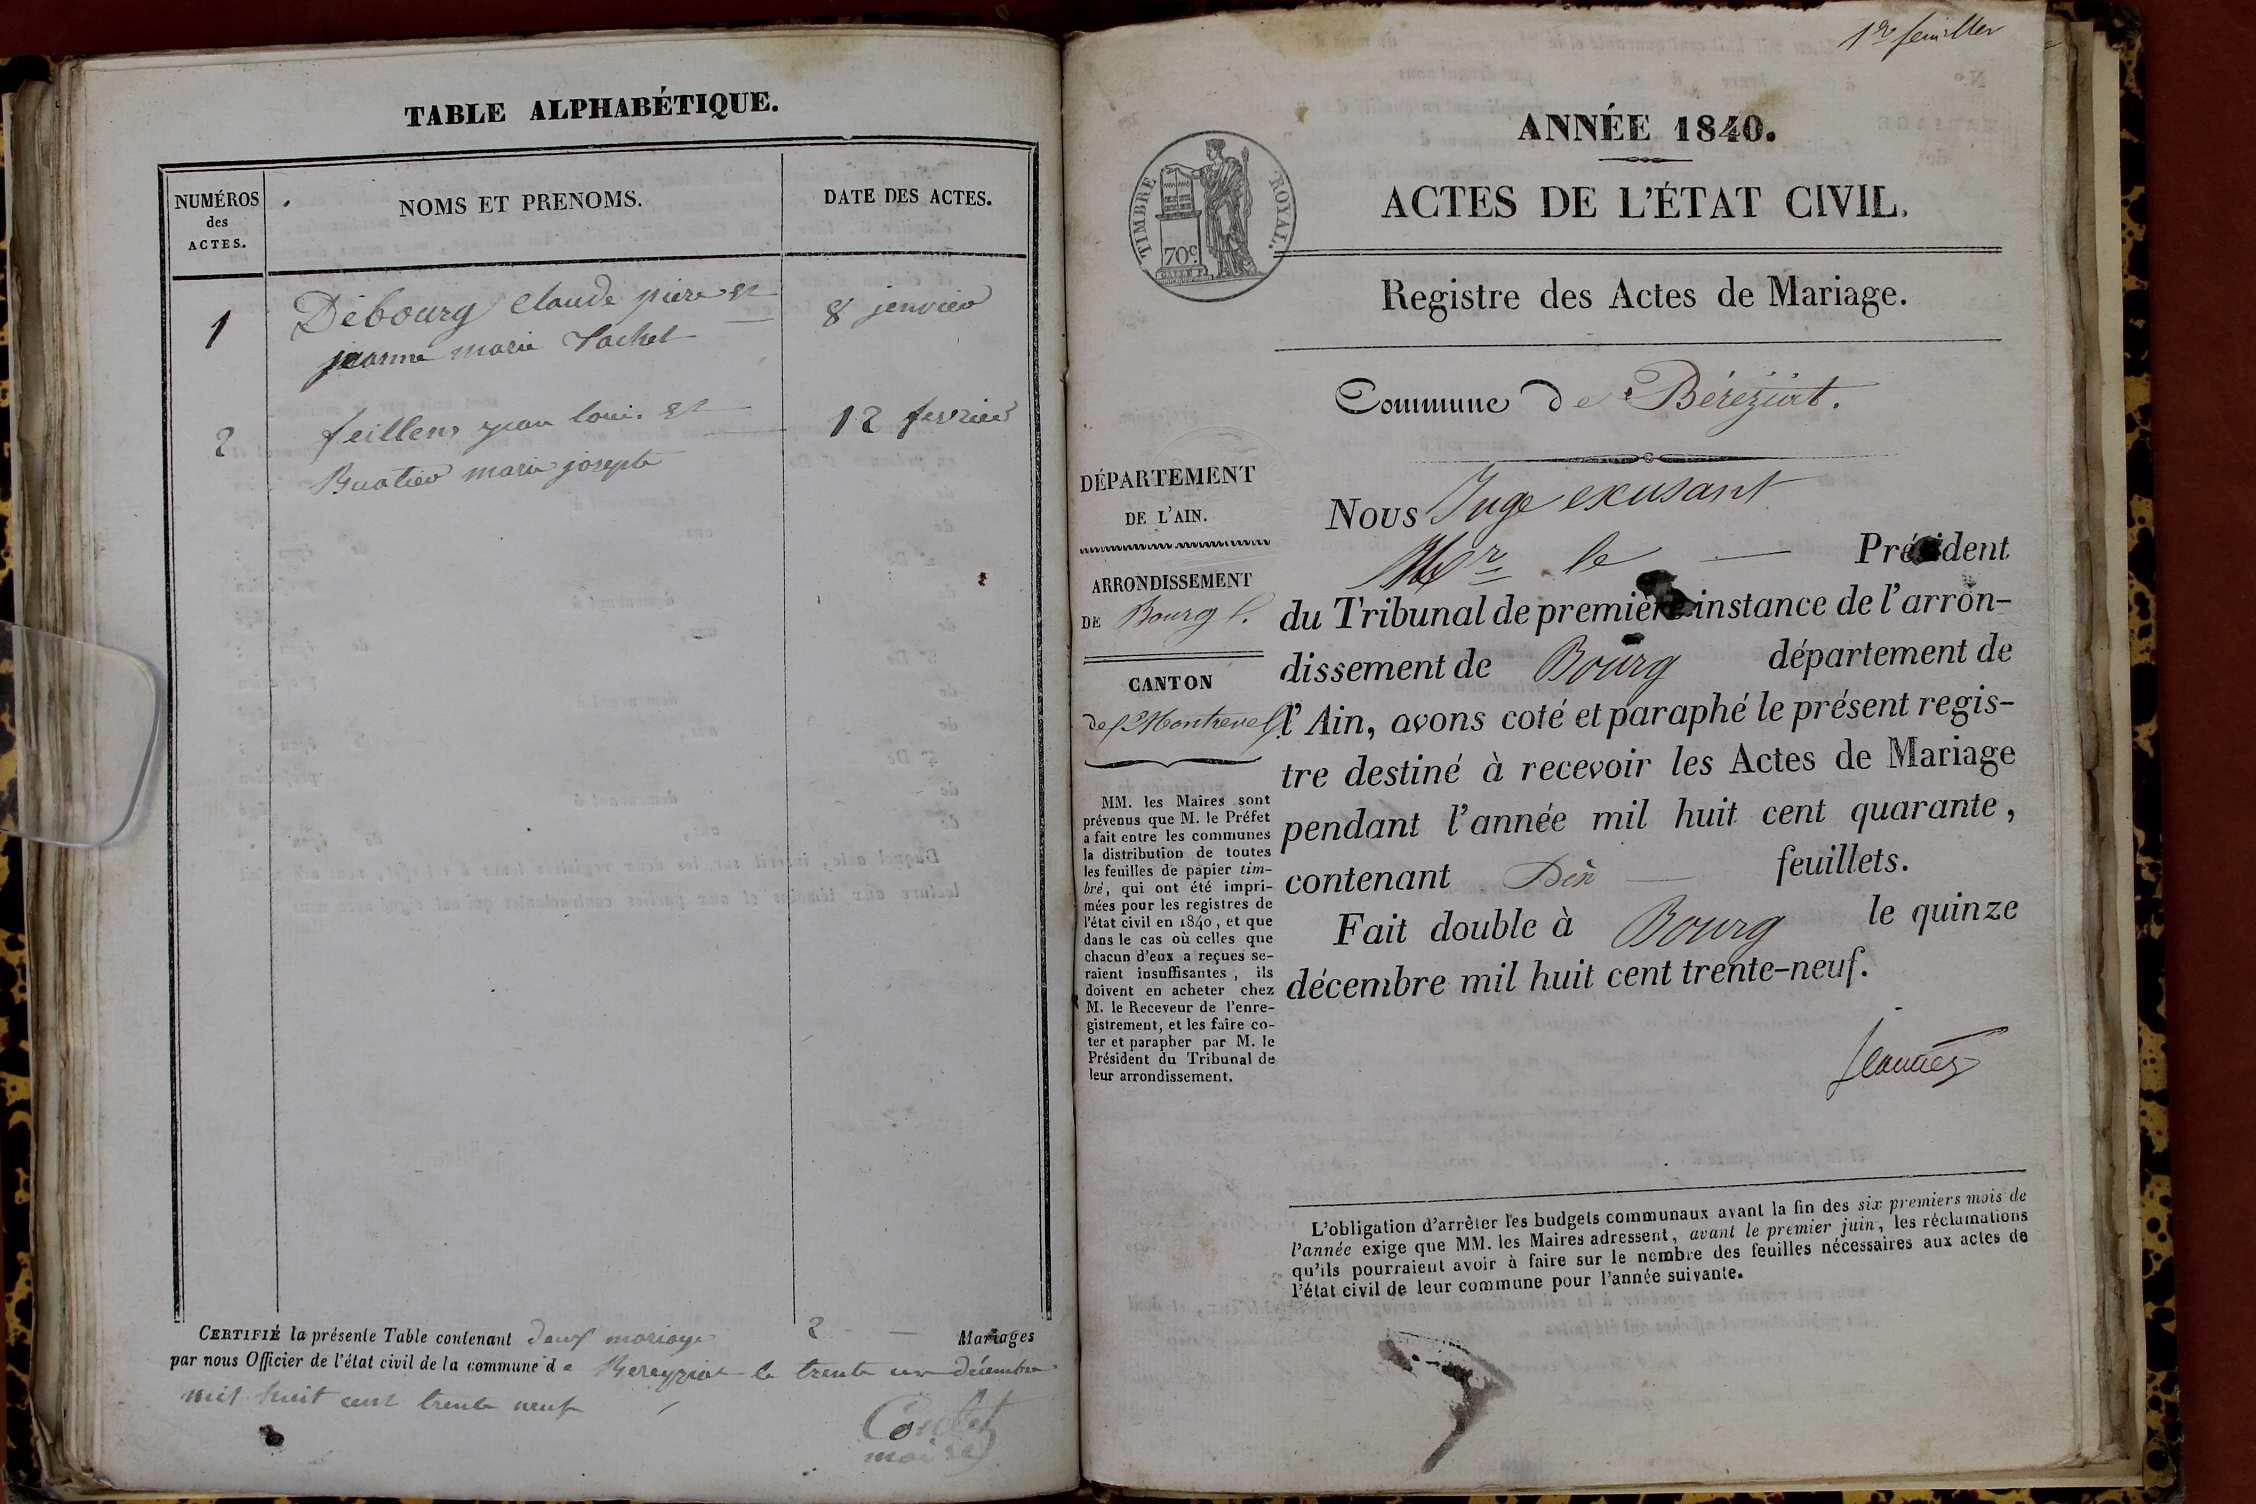 TABLE ALPHABÉTIQUE.
NUMÉROS
des
ACTES.
NOMS ET PRENOMS.
DATE DES ACTES.
1
Débourg Claude piere et
8 jenvier
jeanne marie Vachet
2
feillens jean loui. et
12 fevrier
Buatier marie josepte
CERTIFIÉ la présente Table contenant deux mariage 2 Mariages
par nous Officier de l'état civil de la commune de Bereyziat le trente un décembre
mil huit cent trente neuf
maire
1er feuillet
ANNÉE 1840.
TIMBRE ROYAL.
70c
ACTES DE L'ÉTAT CIVIL.
Registre des Actes de Mariage.
Commune de Béréziat.
DÉPARTEMENT
DE L'AIN.
ARRONDISSEMENT
DE Bourg
CANTON
de Montrevel
MM. les Maires sont
prévenus que M. le Préfet
a fait entre les communes
la distribution de toutes
les feuilles de papier tim-
bré, qui ont été impri-
mées pour les registres de
l'état civil en 1840, et que
dans le cas où celles que
chacun d'eux a reçues se-
raient insuffisantes, ils
doivent en acheter chez
M. le Receveur de l'enre-
gistrement, et les faire co-
ter et parapher par M. le
Président du Tribunal de
leur arrondissement.
Nous Juge excusant
Mr le Président
du Tribunal de première instance de l'arron-
dissement de Bourg département de
l'Ain, avons coté et paraphé le présent regis-
tre destiné à recevoir les Actes de Mariage
pendant l'année mil huit cent quarante,
contenant Dix feuillets.
Fait double à Bourg le quinze
décembre mil huit cent trente-neuf.
L'obligation d'arrêter les budgets communaux avant la fin des six premiers mois de
l'année exige que MM. les Maires adressent, avant le premier juin, les réclamations
qu'ils pourraient avoir à faire sur le nombre des feuilles nécessaires aux actes de
l'état civil de leur commune pour l'année suivante.